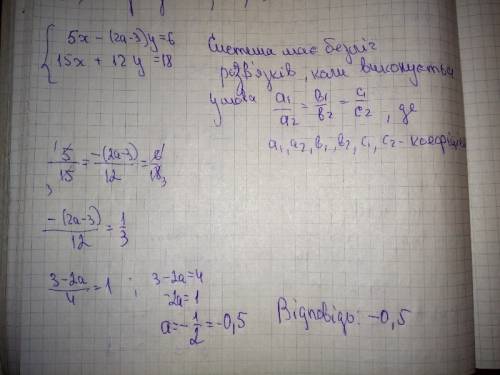 5x - (2a-3)y = 6
15x + 12y = 18
Система має безліч
розв'язків, коли виконується
умова a₁/a₂ = b₁/b₂ = c₁/c₂, де
a₁, a₂, b₁, b₂, c₁, c₂ -
5/15 = -(2a-3)/12 = 6/18
-(2a-3)/12 = 1/3
3-2a/4 = 1 ; 3-2a=4
-2a=1
a = -1/2 = -0,5
Відповідь: -0,5